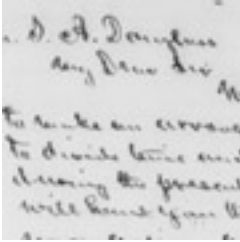 . S. A. Douglass
My Dear Sir
to make an
to divide time and
during the present
will hand you th